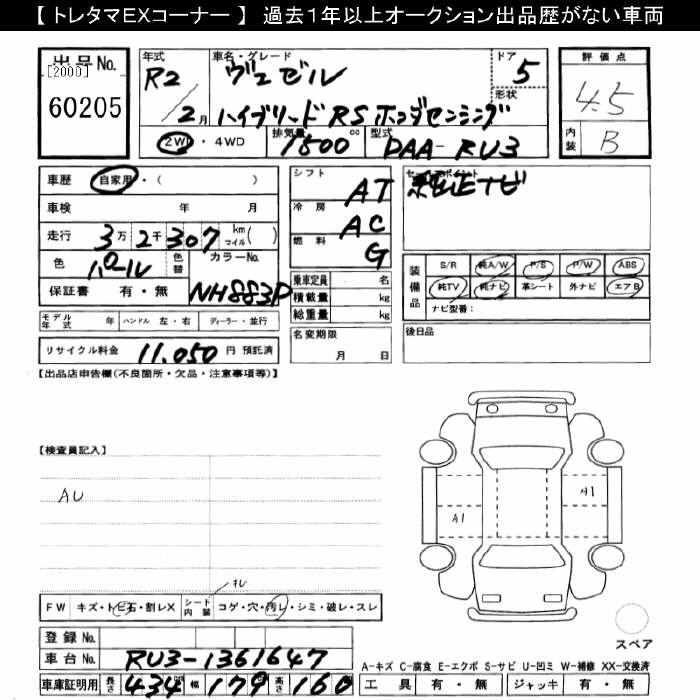 【 トレタマEXコーナー 】 過去1年以上オークション出品歴がない車両
出品No.
[2000]
60205
年式 R2 / 2月
車名・グレード ヴェゼル
ハイブリード RS ホンダセンシング
ドア 5
形状
2WD・4WD 排気量 1500 cc 型式 DAA-RU3
評価点 4.5
内装 B
車歴 自家用・( )
車検 年 月
走行 3万2千307 km マイル( )
色 パール 色替 カラーNo.
保証書 有・無 NH883P
シフト AT
冷房 AC
燃料 G
乗車定員 名
積載量 kg
総重量 kg
名変期限 月 日
セールスポイント
純正ナビ
装備品 S/R 純A/W P/S P/W ABS
純TV 純ナビ 革シート 外ナビ エアB
ナビ型番:
後日品
モデル年式 年 ハンドル 左・右 ディーラー・並行
リサイクル料金 11,050 円 預託済
【出品店申告欄(不良箇所・欠品・注意事項等)】
【検査員記入】
AU
A1
A1
スレ
FW キズ・トビ石・割レX シート内装 コゲ・穴・汚レ・シミ・破レ・スレ
スペア
登録No.
車台No. RU3-1361647
車庫証明用 長さ 434 幅 179 高さ 160
A-キズ C-腐食 E-エクボ S-サビ U-凹ミ W-補修 XX-交換済
工具 有・無 ジャッキ 有・無